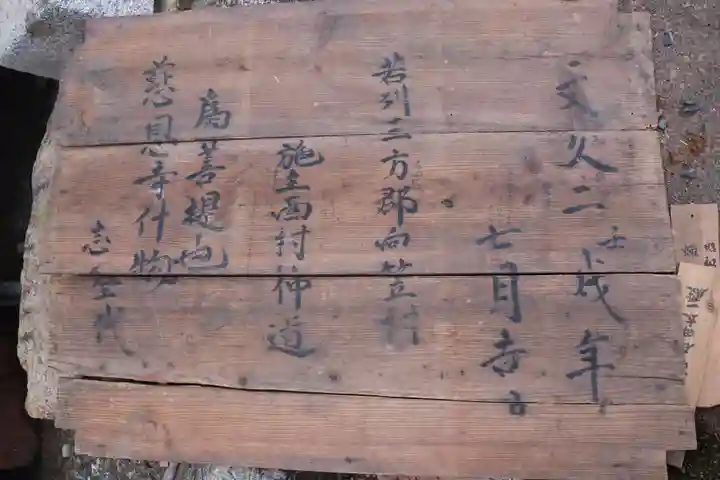 文久二壬戌年
七月吉日
若州三方郡向笠村
施主西村仲道
為菩提也
慈恩寺什物